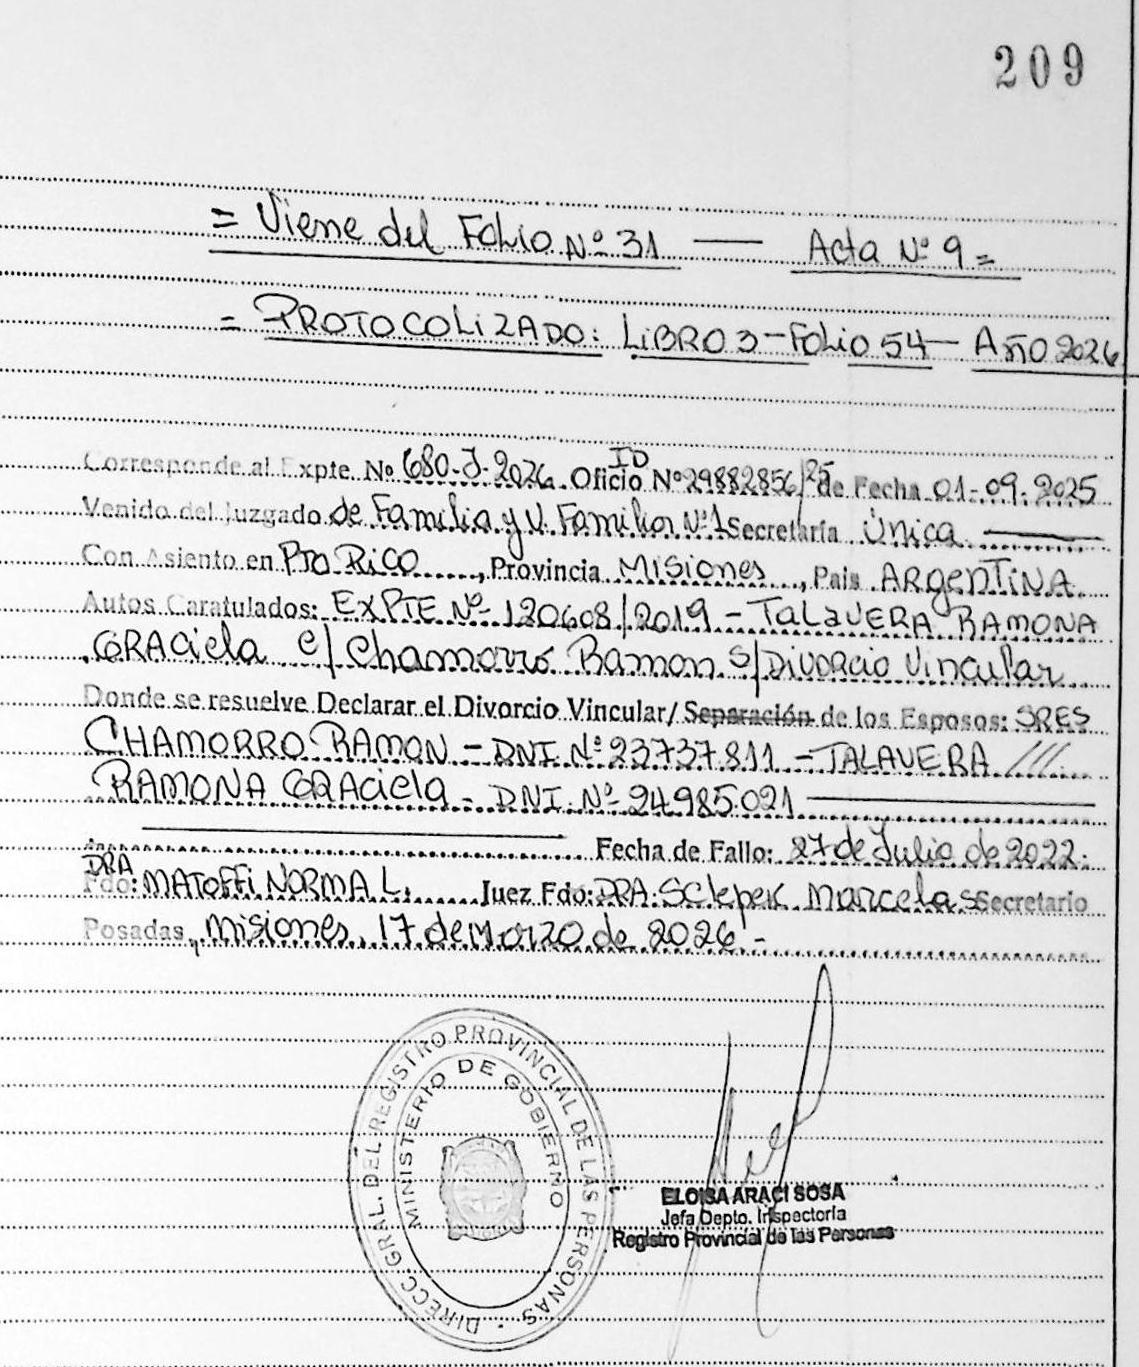 209
= Viene del Folio Nº 31 — Acta Nº 9 =
= PROTOCOLIZADO: LIBRO 3 - Folio 54 - AÑO 2026
Corresponde al Expte. Nº 680-J-2026. Oficio ID Nº 29882856/25 de Fecha 01-09-2025
Venido del Juzgado de Familia y V. Familiar Nº 1 Secretaría Única
Con Asiento en Pto Rico, Provincia Misiones, Pais ARgENTINA
Autos Caratulados: EXPTE Nº 120608/2019 - TALAVERA RAMONA
GRACiela C/ Chamorro Ramon S/ Divorcio Vincular
Donde se resuelve Declarar el Divorcio Vincular/ Separación de los Esposos: SRES
CHAMORRO RAMON - DNI Nº 23737.811 - TALAVERA ///
RAMONA GRACiela - DNI. Nº 24985.021
Fecha de Fallo: 27 de Julio de 2022.
Fdo: DRA MATOFFI NORMA L. Juez Fdo: DRA. SClepek Marcela S Secretario
Posadas, Misiones, 17 de Marzo de 2026.-
DIRECC. GRAL. DEL REGISTRO PROVINCIAL DE LAS PERSONAS
MINISTERIO DE GOBIERNO
ELOISA ARACI SOSA
Jefa Depto. Inspectoría
Registro Provincial de las Personas